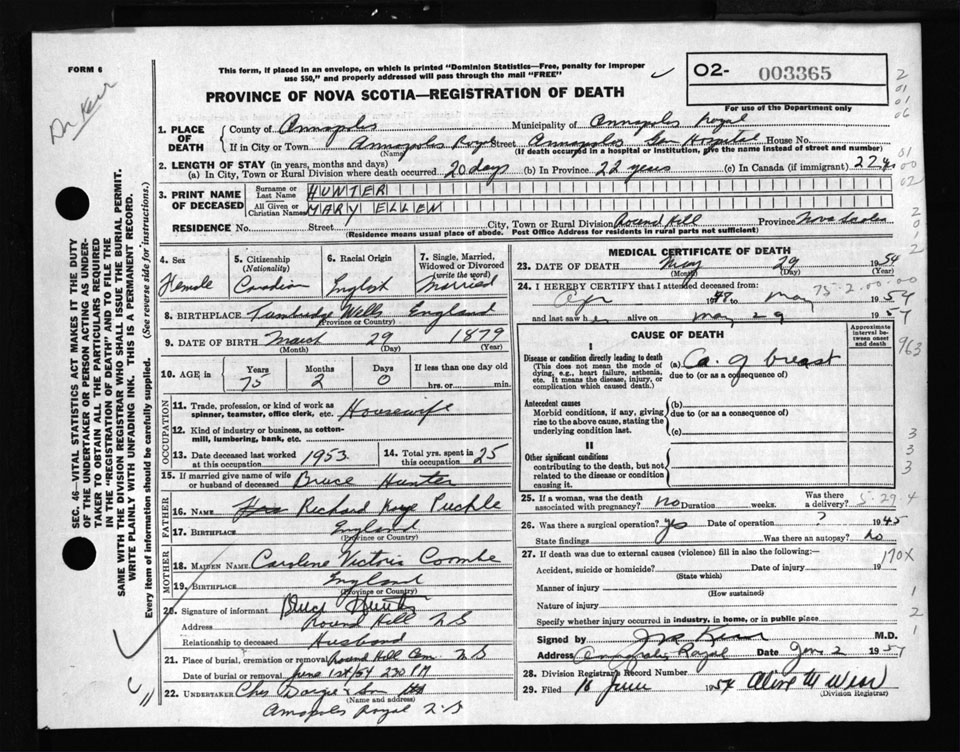 FORM 6
Dr Kerr
This form, if placed in an envelope, on which is printed "Dominion Statistics—Free, penalty for improper
use $50," and properly addressed will pass through the mail "FREE"
O2- 003365
For use of the Department only
PROVINCE OF NOVA SCOTIA—REGISTRATION OF DEATH
SEC. 46—VITAL STATISTICS ACT MAKES IT THE DUTY
OF THE UNDERTAKER OR PERSON ACTING AS UNDER-
TAKER TO OBTAIN ALL THE PARTICULARS REQUIRED
IN THE "REGISTRATION OF DEATH" AND TO FILE THE
SAME WITH THE DIVISION REGISTRAR WHO SHALL ISSUE THE BURIAL PERMIT.
WRITE PLAINLY WITH UNFADING INK. THIS IS A PERMANENT RECORD.
Every item of information should be carefully supplied. (See reverse side for instructions.)
1. PLACE OF DEATH County of Annapolis Municipality of Annapolis Royal
If in City or Town Annapolis Royal Street Annapolis Gen Hospital House No.
(Name) (If death occurred in a hospital or institution, give the name instead of street and number)
2. LENGTH OF STAY (in years, months and days)
(a) In City, Town or Rural Division where death occurred 20 days (b) In Province 22 years (c) In Canada (if immigrant) 27 yrs
3. PRINT NAME OF DECEASED Surname or Last Name HUNTER
All Given or Christian Names MARY ELLEN
RESIDENCE No. Street City, Town or Rural Division Round Hill Province Nova Scotia
(Residence means usual place of abode. Post Office Address for residents in rural parts not sufficient)
4. Sex Female
5. Citizenship (Nationality) Canadian
6. Racial Origin English
7. Single, Married, Widowed or Divorced (write the word) Married
8. BIRTHPLACE Tunbridge Wells England
(Province or Country)
9. DATE OF BIRTH March 29 1879
(Month) (Day) (Year)
10. AGE in Years 75 Months 2 Days 0 If less than one day
hrs. or min.
OCCUPATION
11. Trade, profession, or kind of work as
spinner, teamster, office clerk, etc. Housewife
12. Kind of industry or business, as cotton-
mill, lumbering, bank, etc.
13. Date deceased last worked at this occupation 1953 14. Total yrs. spent in this occupation 25
15. If married give name of wife
or husband of deceased Bruce Hunter
FATHER
16. NAME Richard Kaye Puckle
17. BIRTHPLACE England
(Province or Country)
MOTHER
18. MAIDEN NAME Caroline Victoria Coombe
19. BIRTHPLACE England
(Province or Country)
20. Signature of informant Bruce Hunter
Address Round Hill NS
Relationship to deceased Husband
21. Place of burial, cremation or removal Round Hill Cem NS
Date of burial or removal June 1st/54 230 PM
22. UNDERTAKER Chas Dargie & Son
(Name and address)
Annapolis Royal N.S
MEDICAL CERTIFICATE OF DEATH
23. DATE OF DEATH May 29 1954
(Month) (Day) (Year)
24. I HEREBY CERTIFY that I attended deceased from: 75-2-00-00
Apr 1948 to May 1954
and last saw her alive on May 29 1954
CAUSE OF DEATH
Approximate interval between onset and death
I
Disease or condition directly leading to death
(This does not mean the mode of
dying, e.g., heart failure, asthenia,
etc. It means the disease, injury, or
complication which caused death.)
(a) Ca. of breast
due to (or as a consequence of)
Antecedent causes
Morbid conditions, if any, giving
rise to the above cause, stating the
underlying condition last.
(b)
due to (or as a consequence of)
(c)
II
Other significant conditions
contributing to the death, but not
related to the disease or condition
causing it.
25. If a woman, was the death
associated with pregnancy? no Duration weeks. Was there a delivery? 5-29-4
26. Was there surgical operation? yes Date of operation ? 1945
State findings Was there an autopsy? no
27. If death was due to external causes (violence) fill in also the following:—
Accident, suicide or homicide? Date of injury 19
(State which)
170X
Manner of injury
(How sustained)
Nature of injury
Specify whether injury occurred in industry, in home, or in public place
Signed by Kerr M.D.
Address Annapolis Royal Date June 2 1954
28. Division Registrar's Record Number
29. Filed 16 June 1954
(Division Registrar)
963